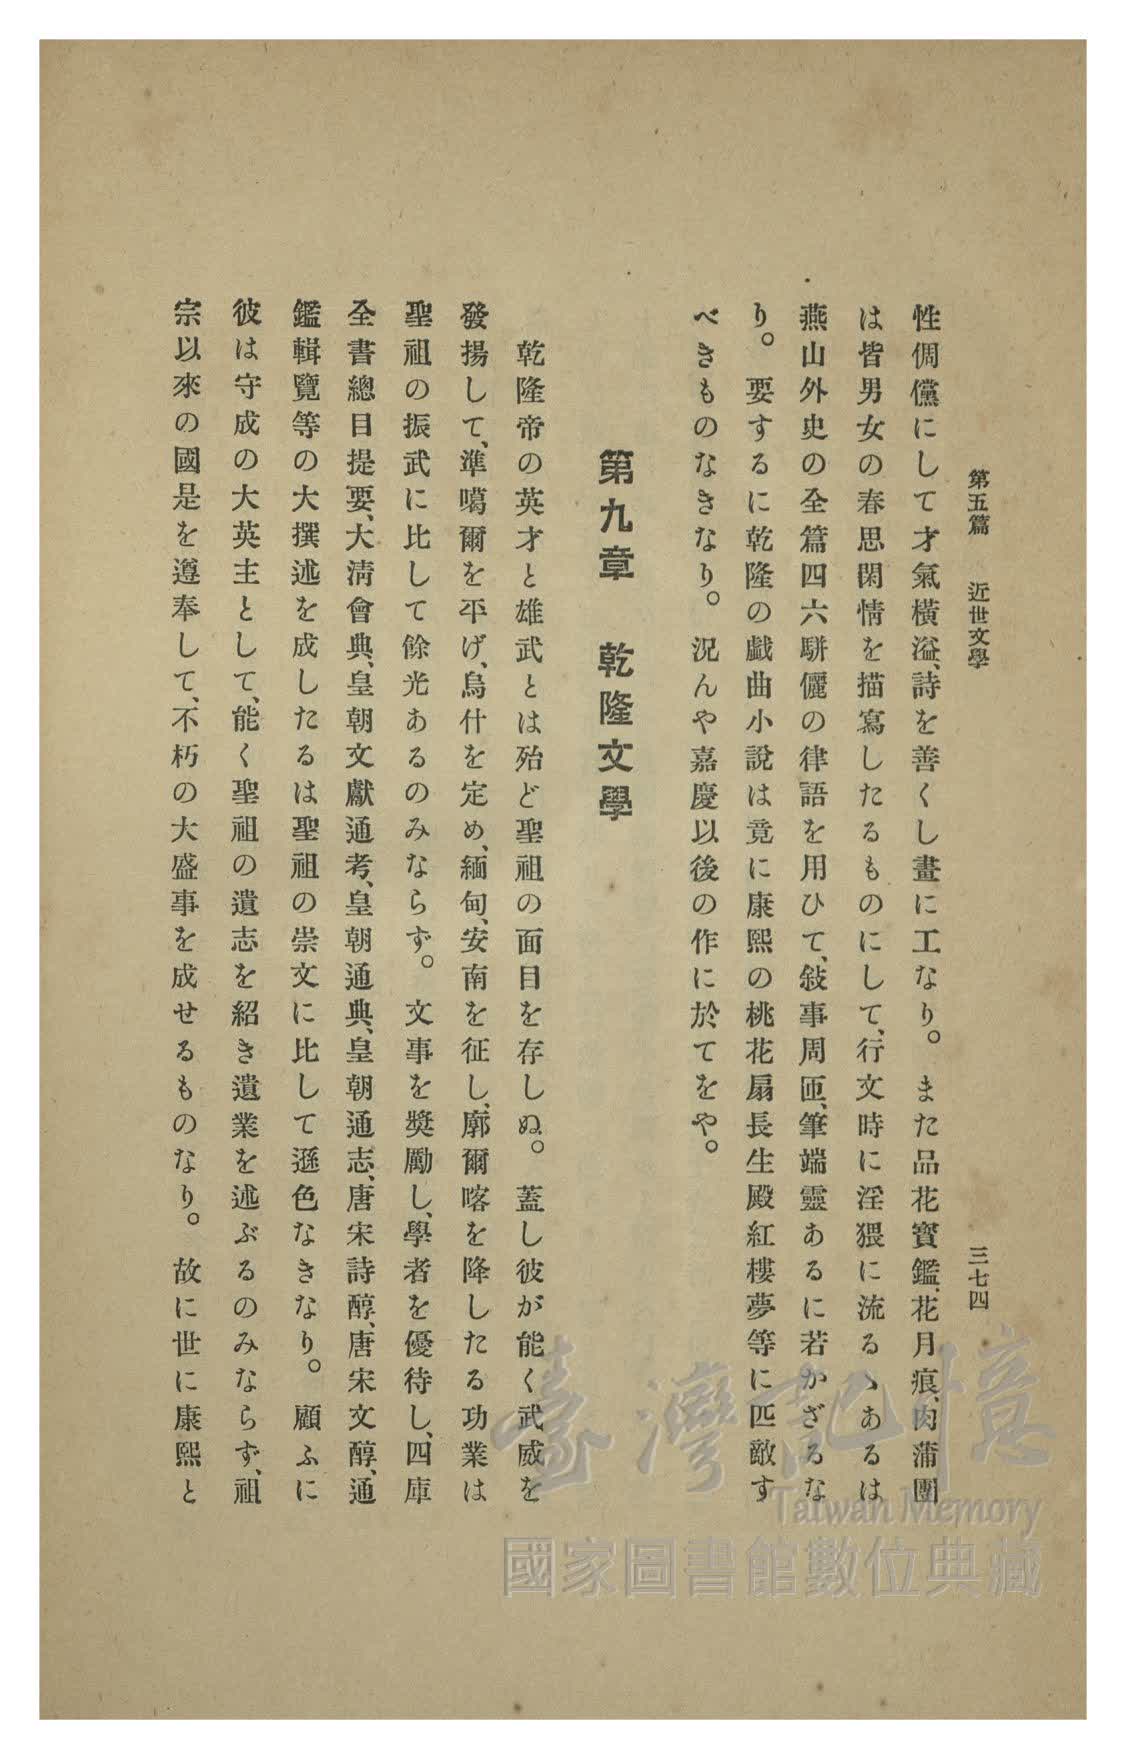 第五篇　近世文學　三七四
性倜儻にして才氣橫溢、詩を善くし畫に工なり。また品花寶鑑、花月痕、肉蒲團
は皆男女の春思閑情を描寫したるものにして、行文時に淫猥に流るゝあるは
燕山外史の全篇四六駢儷の律語を用ひて、敍事周匝、筆端靈あるに若かざるな
り。要するに乾隆の戯曲小說は竟に康熙の桃花扇長生殿紅樓夢等に匹敵す
べきものなきなり。況んや嘉慶以後の作に於てをや。
第九章　乾隆文學
乾隆帝の英才と雄武とは殆ど聖祖の面目を存しぬ。蓋し彼が能く武威を
發揚して、準噶爾を平げ、烏什を定め、緬甸、安南を征し、廓爾喀を降したる功業は
聖祖の振武に比して餘光あるのみならず。文事を奬勵し、學者を優待し、四庫
全書總目提要、大淸會典、皇朝文獻通考、皇朝通典、皇朝通志、唐宋詩醇、唐宋文醇、通
鑑輯覽等の大撰述を成したるは聖祖の崇文に比して遜色なきなり。顧ふに
彼は守成の大英主として、能く聖祖の遺志を紹き遺業を述ぶるのみならず、祖
宗以來の國是を遵奉して、不朽の大盛事を成せるものなり。故に世に康熙と
臺灣記憶
Taiwan Memory
國家圖書館數位典藏